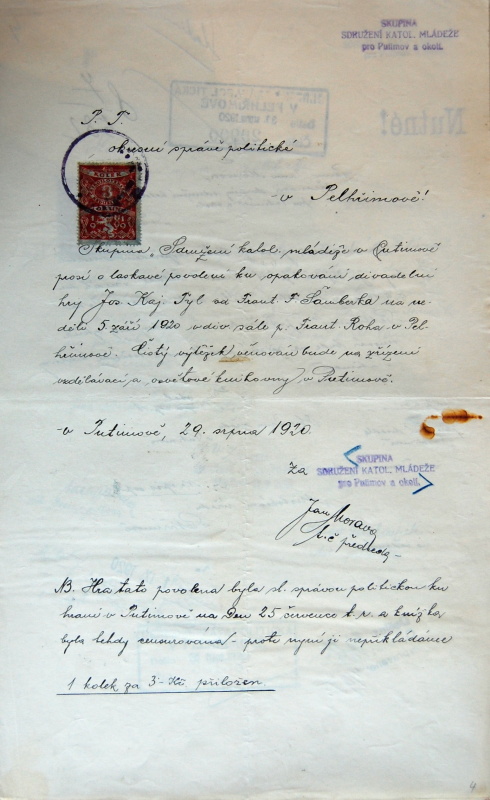 SKUPINA
SDRUŽENÍ KATOL. MLÁDEŽE
pro Putimov a okolí.
Nutné!
P. T.
okresní správě politické
v Pelhřimově!
KOLEK
3
1919
Skupina Sdružení katol. mládeže v Putimově
prosí o laskavé povolení ku opakování divadelní
hry Jos. Kaj. Tyl od Frant. F. Šamberka na ne-
děli 5. září 1920 v div. sále p. Frant. Roha v Pel-
hřimově. Čistý výtěžek věnován bude na zřízení
vzdělávací a osvětové knihovny v Putimově.
v Putimově, 29. srpna 1920
za
SKUPINA
SDRUŽENÍ KATOL. MLÁDEŽE
pro Putimov a okolí.
Jan Morava
t. č. předseda
NB. Hra tato povolena byla sl. správou politickou ku
hraní v Putimově na den 25 července t. r. a knížka
byla tehdy censurována - proto nyní ji nepřikládáme
1 kolek za 3 Kč přiložen.
4